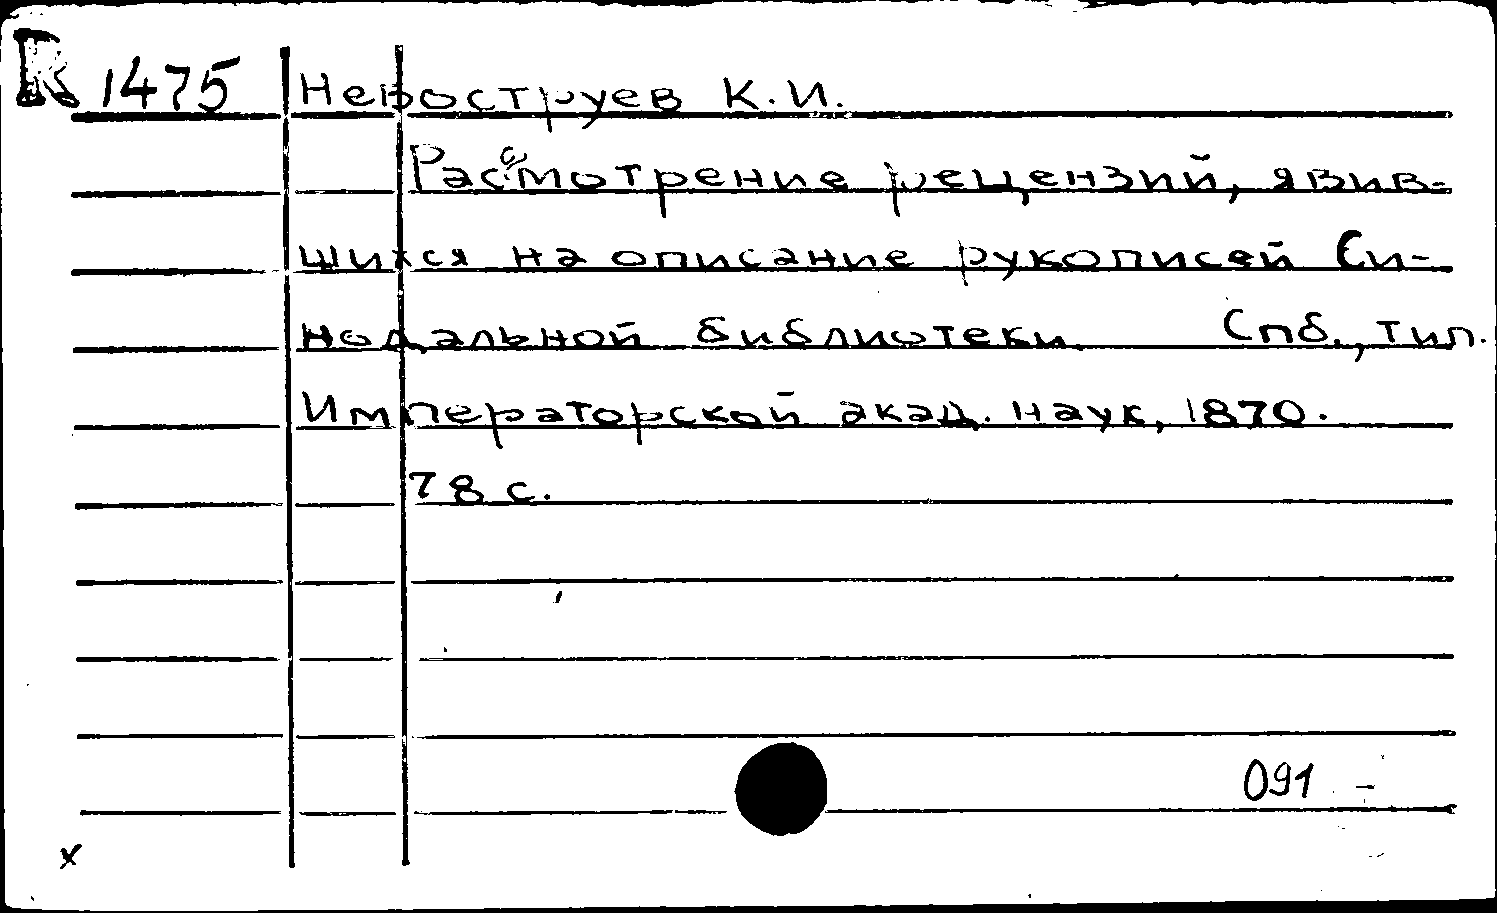 R 1475 Невоструев К.И.
Рассмотрение рецензий, явив-
шихся на описание рукописей Си-
нодальной библиотеки. Спб., тип.
Императорской акад. наук, 1870.
78 с.
091 -
x